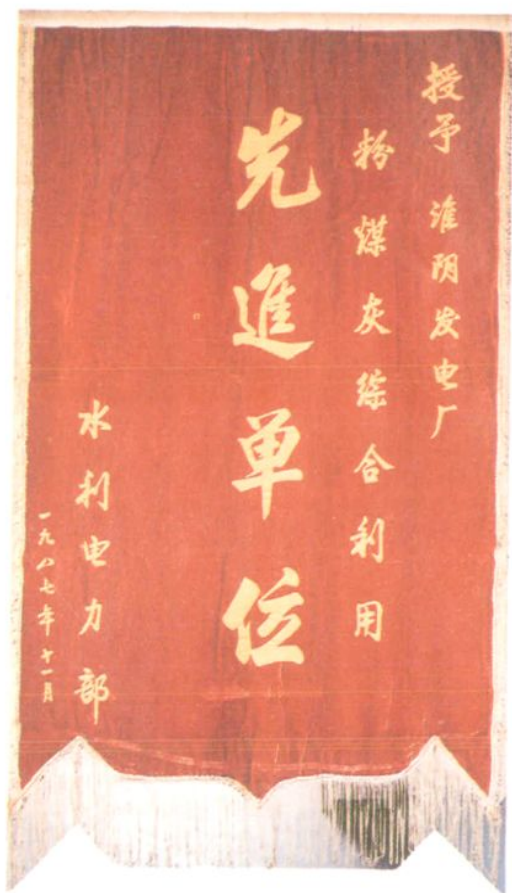 授予淮阴发电厂
粉煤灰综合利用
先進单位
水利电力部
一九八七年十一月